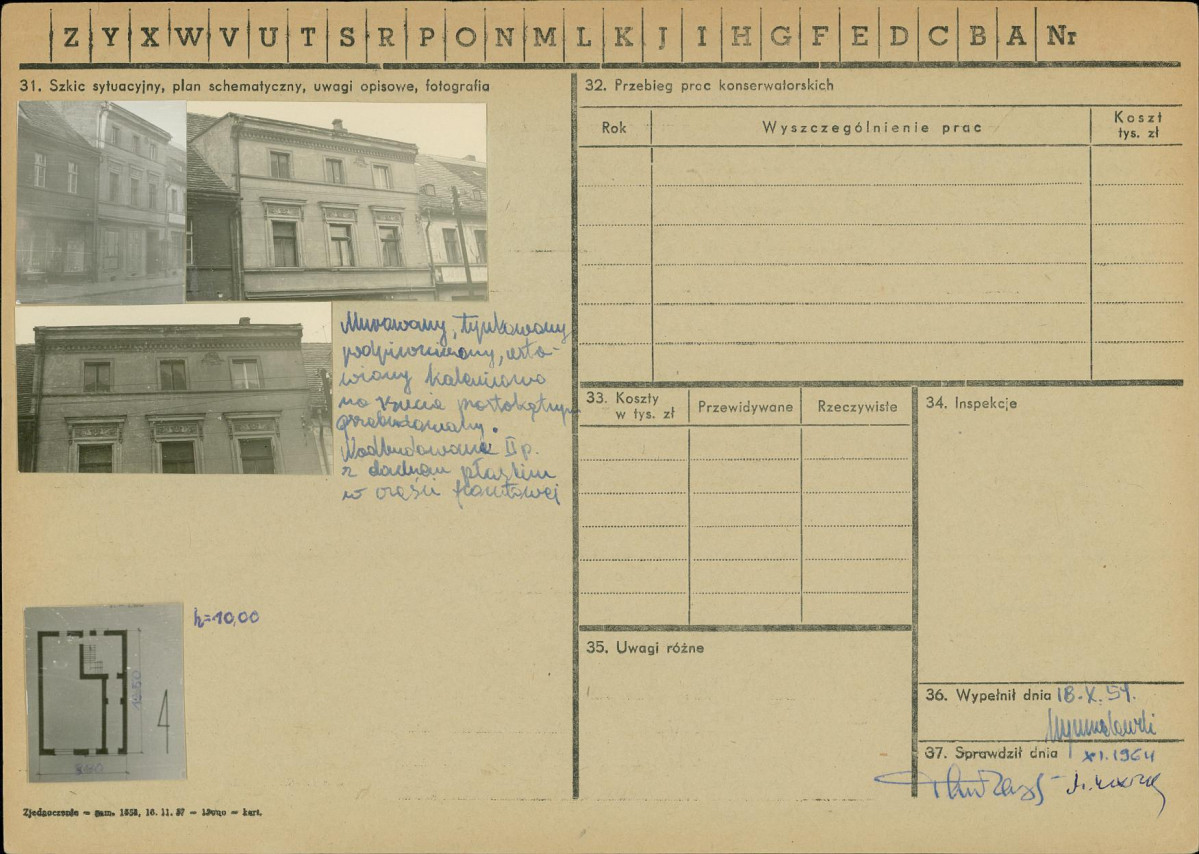 Z Y X W V U T S R P O N M L K J I H G F E D C B A Nr
31. Szkic sytuacyjny, plan schematyczny, uwagi opisowe, fotografia
Murowany, tynkowany
podpiwniczony, usta-
wiony kalenicowo
na rzucie prostokątnym
przebudowany.
Nadbudowane II p.
z dachem płaskim
w części frontowej
h=10,00
840
Zjednoczenie — zam. 1658, 16. 11. 57 — kart.
32. Przebieg prac konserwatorskich
Rok
Wyszczególnienie prac
Koszt
tys. zł
33. Koszty
w tys. zł
Przewidywane
Rzeczywiste
34. Inspekcje
35. Uwagi różne
36. Wypełnił dnia 18.X.59.
37. Sprawdził dnia XI.1964